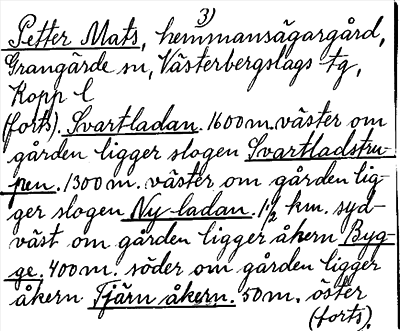 3)
Petter Mats, hemmansägargård,
Grangärde sn, Västerbergslags tg,
Kopp l
(forts). Svartladan. 1600 m. väster om
gården ligger slogen Svartladstru-
pen. 1300 m. väster om gården lig-
ger slogen Ny-ladan. 1½ km. syd-
väst om gården ligger åkern Byg-
ge. 400 m. söder om gården ligger
åkern Tjärn åkern. 50 m. öster
(forts).